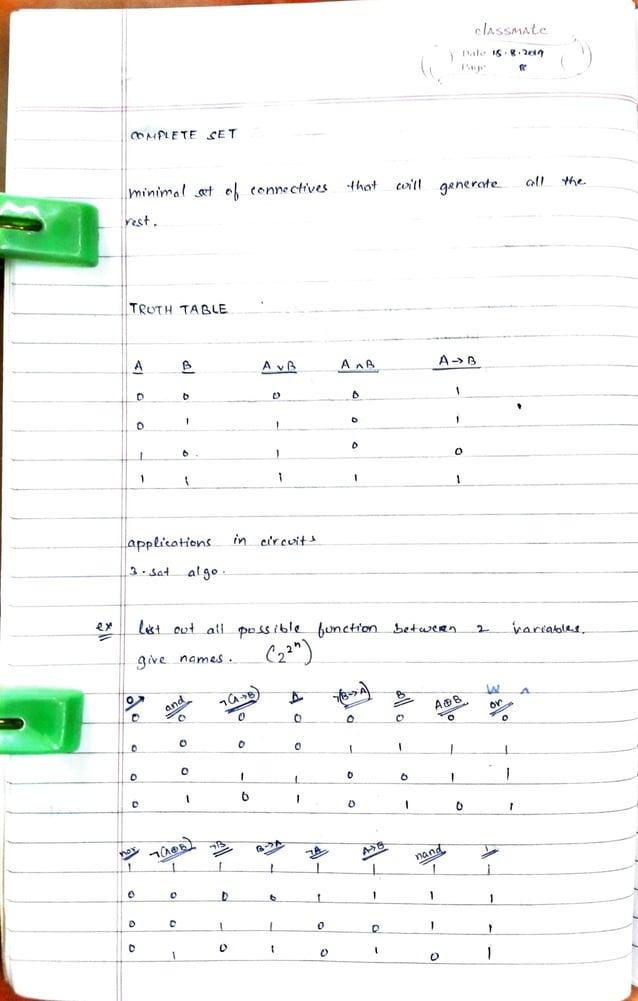 classmate
Date 15.8.2019
Page 8
COMPLETE SET
minimal set of connectives that will generate all the
rest.
TRUTH TABLE
A B A∨B A∧B A→B
0 0 0 0 1
0 1 1 0 1
1 0 1 0 0
1 1 1 1 1
applications in circuits
3-sat algo.
ex List out all possible function between 2 variables.
give names. (2^2^n)
0 and ¬(A→B) A ¬(B→A) B A⊕B or
0 0 0 0 0 0 0 0
0 0 0 0 1 1 1 1
0 0 1 1 0 0 1 1
0 1 0 1 0 1 0 1
nor ¬(A⊕B) ¬B B→A ¬A A→B nand 1
1 1 1 1 1 1 1 1
0 0 0 0 1 1 1 1
0 0 1 1 0 0 1 1
0 1 0 1 0 1 0 1